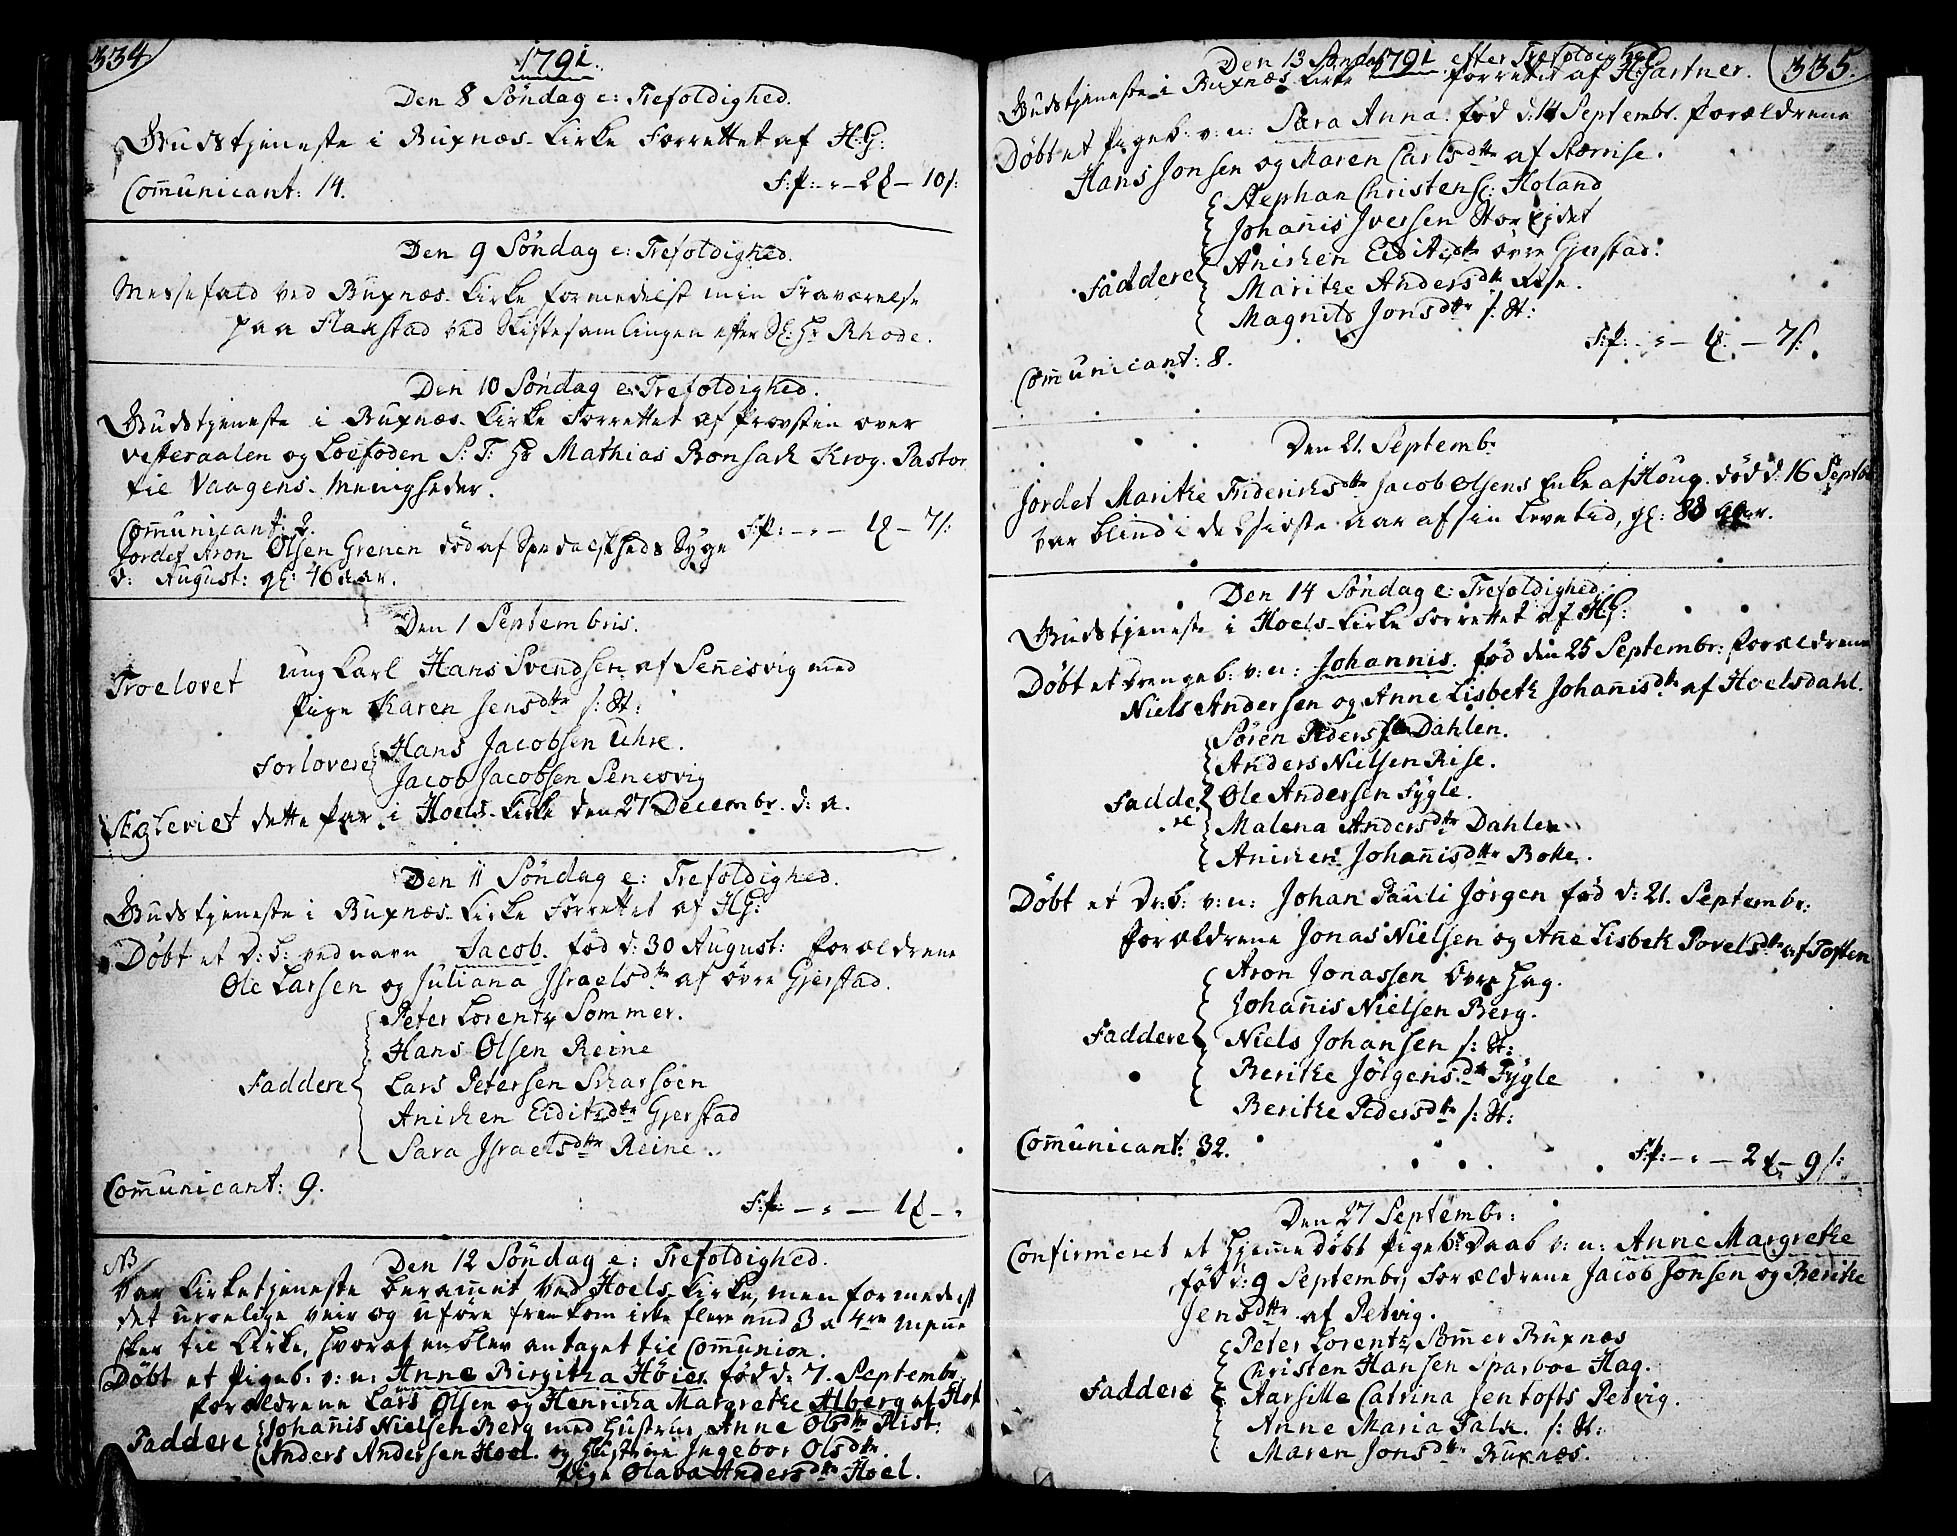 334.
1791.
Den 8 Söndag e: Trefoldighed.
Gudstjeneste i Buxnæs Kirke Forrettet af H:G:
Com̅unicant: 14.
F:P: - " - 2 - 10 ſ:
Den 9 Söndag e: Trefoldighed.
Messefald ved Buxnæs Kirke formedelst min Fraværelse
paa Flakstad ved Skiftesamlingen efter Sl: Hr Rhode.
Den 10 Söndag e: Trefoldighed.
Gudstjeneste i Buxnæs Kirke Forrettet af Provsten over
Vesteraalen og Loefoden S: T: Hr Mathias Bonsach Krog. Pastor
til Vaagens Menigheder.
Com̅unicant: 2.
F:P: - " - 1 - 7 ſ:
Jordet Aron Olsen Grenen död af Spedalskheds Syge
d: August: gl: 46 aar.
Den 1 Septembris.
Troelovet Ung Karl Hans Svendsen af Sen̅esvig med
Pige Karen Jensdttr s: St:
Forlovere Hans Jacobsen Uhre.
Jacob Jacobsen Senesvig
Ægteviet dette Par i Hoels Kirke den 27 Decembr. d: a.
Den 11 Söndag e: Trefoldighed.
Gudstjeneste i Buxnæs Kirke Forrettet af HG:
Döbt et D: b: ved navn Jacob. föd d: 30 August: Forældrene
Ole Larsen og Juliana Jsraelsdtr af övre Gjerstad.
Peter Lorentz Sommer.
Hans Olsen Reine
Faddere Lars Petersen Skarsöen
Anichen Eiditzdttr Gjerstad
Sara Jsraelsdttr Reine.
Com̅unicant: 9.
F:P: - " - 1 - "
NB
Den 12 Söndag e: Trefoldighed.
Var Kirketjeneste beram̅et ved Hoels Kirke, men formedelst
det uroelige Veir og uföre fremkom ikke flere end 3 a 4re Men̅e
sker til Kirke, hvoraf en blev antaget til Com̅union.
Döbt et Pigeb: v: n: Anne Birgitha Höier föd d: 7. Septembr
Forældrene Lars Olsen og Henricha Margrethe Alberg af Hol
Faddere Johan̅is Nielsen Berg med Hustrue Anne Olsdttr Rist:
Anders Andersen Hoel. og Hustrue Ingebor Olsdttr.
Pige Olava Andersdttr Hoel.
335.
1791
Den 13 Söndag efter Trefoldighed
Gudstjeneste i Buxnæs Kirke forrettet af HGartner.
Döbt et Pigeb: v: n: Sara Anna. föd d: 14 Septembr. Forældrene
Hans Jonsen og Maren Carlsdttr af Storrise.
Stephan Christens: Holand
Johan̅is Jversen Storeidet
Anichen Eiditzdttr övre Gjerstad.
Faddere Marithe Andersdttr Rise.
Magnild Jonsdttr s: St:
F:P: - " - 1 - 7 ſ:
Com̅unicant: 8.
Den 21. Septembr
Jordet Marithe Friderichsdttr Jacob Olsens Enke af Houg. död d: 16 Septbr
var blind i de sidste aar af sin levetid, gl: 88 aar.
Den 14 Söndag e: Trefoldighed.
Gudstjeneste i Hoels Kirke forrettet af HG:
Döbt et Drengeb: v: n: Johannis. föd den 25 Septembr: Forældrene
Niels Andersen og Anne Lisbeth Johan̅isdtr af Hoelsdahl.
Sören Peders Dahlen.
Anders Nielsen Rise.
Fadde Ole Andersen Fygle.
re Malena Andersdttr Dahlen
Anichen Johan̅isdttr Bolle.
Döbt et Dr: b: v: n: Johan Pauli Jörgen föd d: 21. Septembr:
Forældrene Jonas Nielsen og An̅e Lisbeth Povelsdttr af Toften
Aron Jonassen övre Hag.
Johan̅is Nielsen Berg.
Faddere Niels Johansen s: St:
Berithe Jörgensdttr Fygle
Berithe Pedersdttr s: St:
Com̅unicant: 32.
F:P: - " - 2 - 9 ſ:
Den 27 Septembr:
Confirmeret et Hjem̅edöbt Pigeb: Daab v: n: Anne Margrethe
föd d: 9 Septembr, Forældrene Jacob Jonsen og Berithe
Jensdttr af Petvig.
Peter Lorentz Som̅er Buxnæs
Christen Hansen Sparboe Hag.
Faddere Aarsille Catrina Jentofts Petvig.
Anne Maria Falk. s: St:
Maren Jonsdttr Buxnæs.